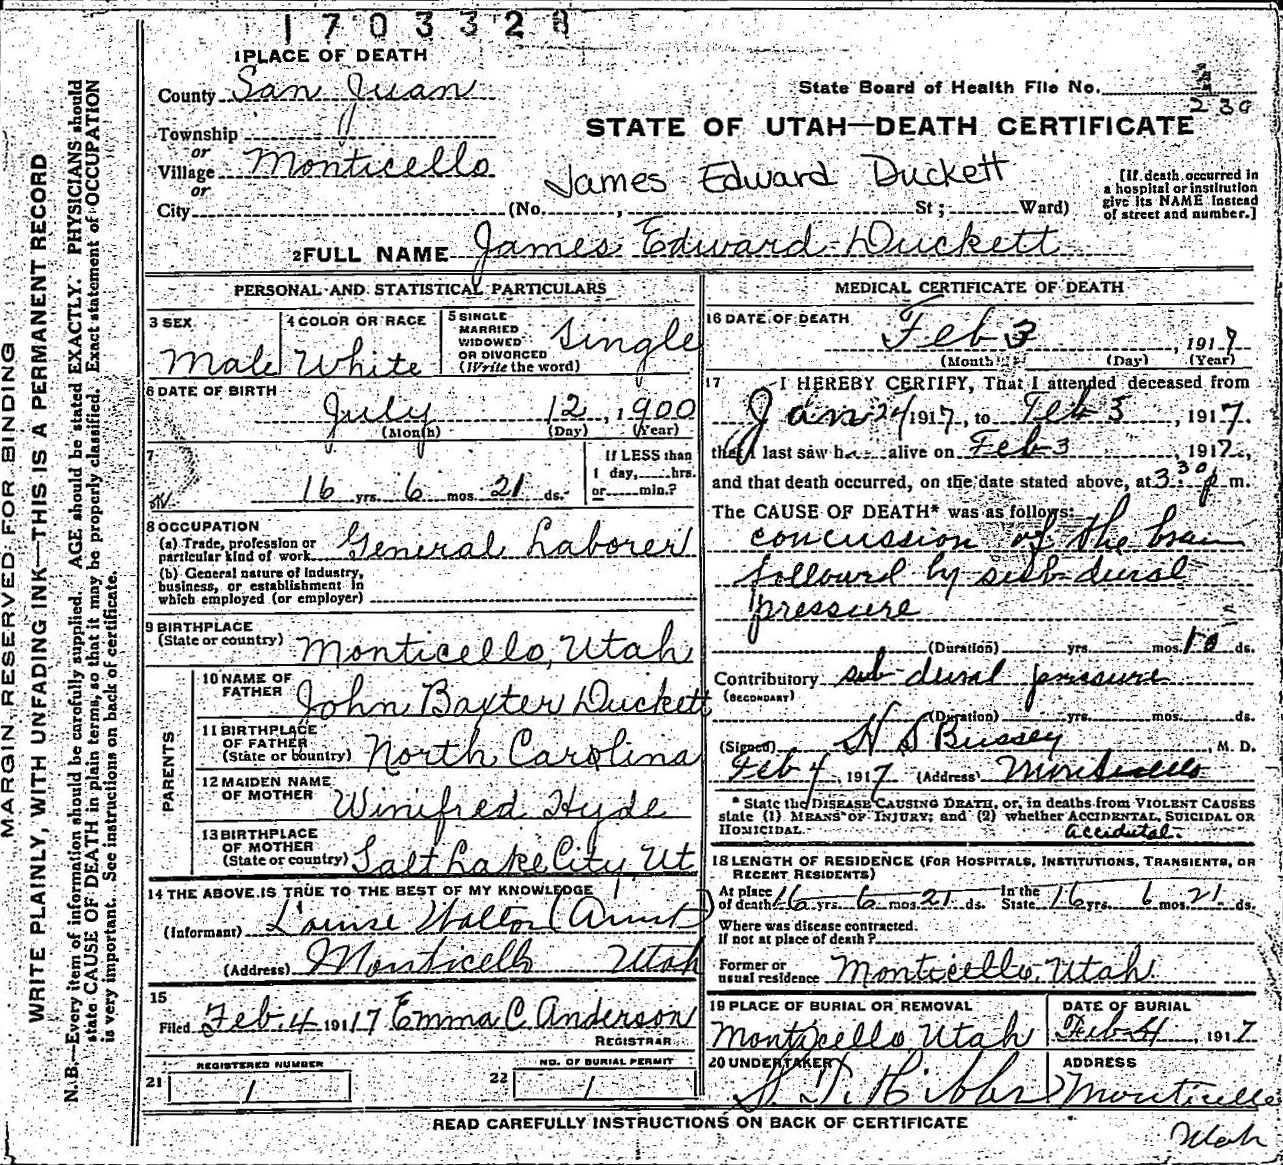 1703328
1 PLACE OF DEATH
County San Juan
State Board of Health File No.
230
Township
STATE OF UTAH—DEATH CERTIFICATE
or
Village Monticello
James Edward Duckett
or
City (No. , St ; Ward)
[If death occurred in
a hospital or institution
give its NAME instead
of street and number.]
2 FULL NAME James Edward Duckett
PERSONAL AND STATISTICAL PARTICULARS
3 SEX
Male
4 COLOR OR RACE
White
5 SINGLE
MARRIED
WIDOWED
OR DIVORCED
(Write the word)
Single
6 DATE OF BIRTH
July 12, 1900
(Month) (Day) (Year)
7
16 yrs. 6 mos. 21 ds.
If LESS than
1 day, hrs.
or min.?
8 OCCUPATION
(a) Trade, profession or
particular kind of work General Laborer
(b) General nature of industry,
business, or establishment in
which employed (or employer)
9 BIRTHPLACE
(State or country) Monticello, Utah
PARENTS
10 NAME OF
FATHER John Baxter Duckett
11 BIRTHPLACE
OF FATHER
(State or country) North Carolina
12 MAIDEN NAME
OF MOTHER Winifred Hyde
13 BIRTHPLACE
OF MOTHER
(State or country) Salt Lake City, Ut
14 THE ABOVE IS TRUE TO THE BEST OF MY KNOWLEDGE
(Informant) Louise Walton (Aunt)
(Address) Monticello Utah
15
Filed Feb. 4 19117 Emma C. Anderson
REGISTRAR
REGISTERED NUMBER
21 1
NO. OF BURIAL PERMIT
22 1
MEDICAL CERTIFICATE OF DEATH
16 DATE OF DEATH
Feb 3, 1917
(Month) (Day) (Year)
17 I HEREBY CERTIFY, That I attended deceased from
Jan 24 1917, to Feb 3, 1917.
that I last saw h alive on Feb 3, 1917,
and that death occurred, on the date stated above, at 3:30 p m.
The CAUSE OF DEATH* was as follows:
concussion of the brain
followed by sub-dural
pressure
(Duration) yrs. mos. 10 ds.
Contributory sub dural pressure
(SECONDARY)
(Duration) yrs. mos. ds.
(Signed) H S Bussey, M. D.
Feb 4, 1917 (Address) Monticello
* State the DISEASE CAUSING DEATH, or, in deaths from VIOLENT CAUSES
state (1) MEANS OF INJURY; and (2) whether ACCIDENTAL, SUICIDAL OR
HOMICIDAL. Accidental.
18 LENGTH OF RESIDENCE (FOR HOSPITALS, INSTITUTIONS, TRANSIENTS, OR
RECENT RESIDENTS)
At place
of death 16 yrs. 6 mos. 21 ds. In the
State 16 yrs. 6 mos. 21 ds.
Where was disease contracted.
if not at place of death?
Former or
usual residence Monticello, Utah.
19 PLACE OF BURIAL OR REMOVAL
Monticello, Utah
DATE OF BURIAL
Feb 4, 1917
20 UNDERTAKER
ADDRESS
Monticello
Utah
READ CAREFULLY INSTRUCTIONS ON BACK OF CERTIFICATE
MARGIN RESERVED FOR BINDING
WRITE PLAINLY, WITH UNFADING INK—THIS IS A PERMANENT RECORD
N. B.—Every item of information should be carefully supplied. AGE should be stated EXACTLY. PHYSICIANS should
state CAUSE OF DEATH in plain terms, so that it may be properly classified. Exact statement of OCCUPATION
is very important. See instructions on back of certificate.